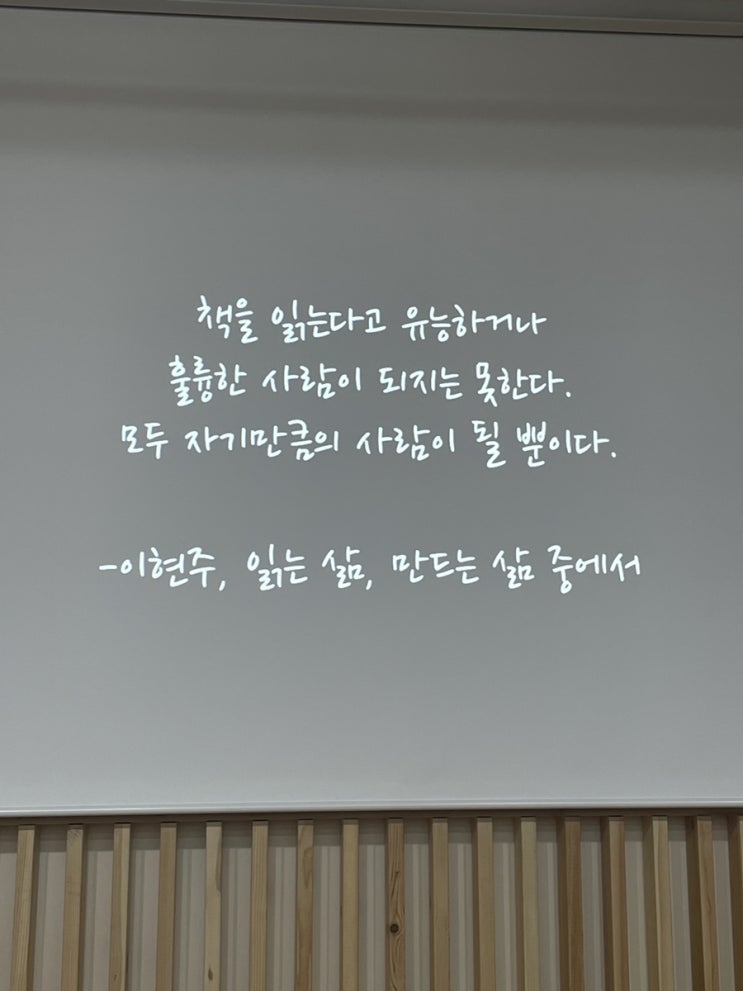 책을 읽는다고 유능하거나
훌륭한 사람이 되지는 못한다.
모두 자기만큼의 사람이 될 뿐이다.
-이현주, 읽는 삶, 만드는 삶 중에서